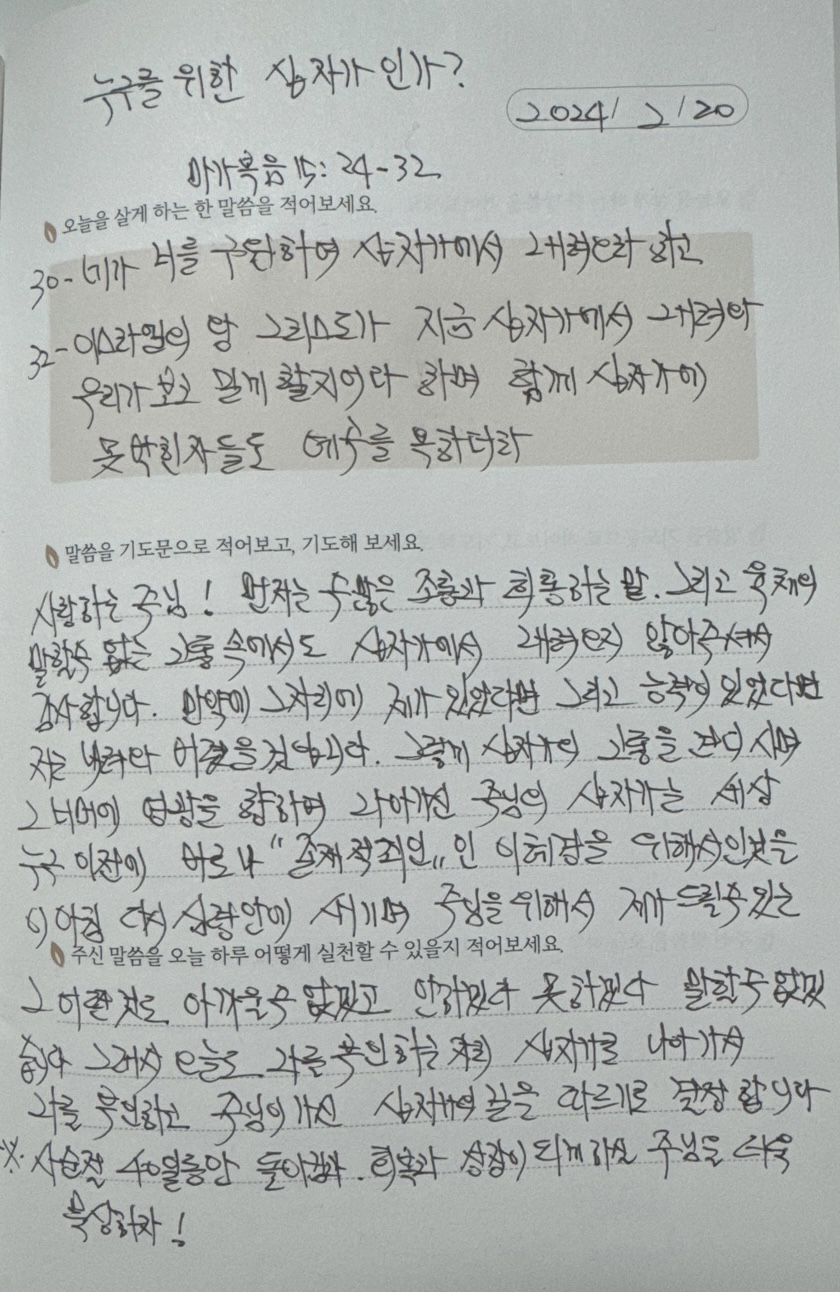 누구를 위한 십자가인가?
2024/ 2/20
마가복음 15: 24-32
오늘을 살게 하는 한 말씀을 적어보세요.
30- 네가 너를 구원하여 십자가에서 내려오라 하고
32- 이스라엘의 왕 그리스도가 지금 십자가에서 내려와
우리가 보고 믿게 할지어다 하며 함께 십자가에
못박힌자들도 예수를 욕하더라
말씀을 기도문으로 적어보고, 기도해 보세요.
사랑하는 주님! 던지는 수많은 조롱과 희롱하는 말. 그리고 육체의
말할수 없는 고통 속에서도 십자가에서 내려오지 않아주셔서
감사합니다. 만약에 그자리에 제가 있었다면 그리고 능력이 있었다면
저는 내려와 버렸을것입니다. 그렇게 십자가의 고통을 견디시며
그 너머에 영광을 향하여 나아가신 주님의 십자가는 세상
누구 이전에 바로 나 "존재적죄인" 인 을 위해서인것을
이 아침 다시 심령안에 새기며 주님을 위해서 제가 드릴수 있는
주신 말씀을 오늘 하루 어떻게 실천할 수 있을지 적어보세요.
그 어떤것도 아까울수 없겠고 안하겠다 못하겠다 말할수 없겠
습니다 그래서 오늘도 나를 부인하는 십자가로 나아가서
나를 부인하고 주님이 가신 십자가의 길을 따르기로 결정 합니다
※. 사순절 40일동안 돌이킴과. 회복과 성장이 되게하실 주님을 더욱
묵상하자!